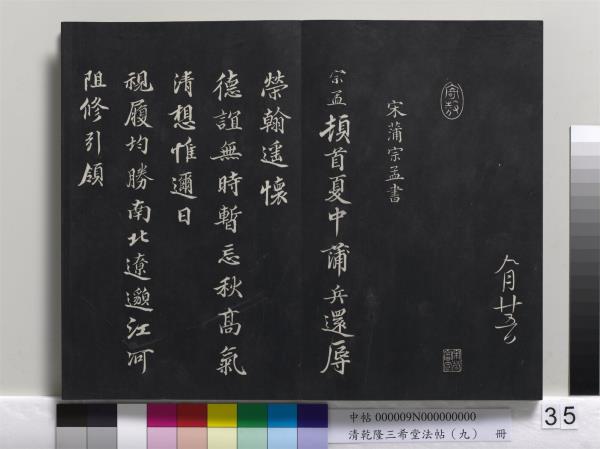 八月廿五日
宋蒲宗孟書
宗孟頓首夏中蒲兵還辱
榮翰遥懷
德誼無時暫忘秋高氣
清想惟邇日
視履均勝南北遼邈江河
阻修引領
35
中帖 000009N000000000
清乾隆三希堂法帖（九） 冊